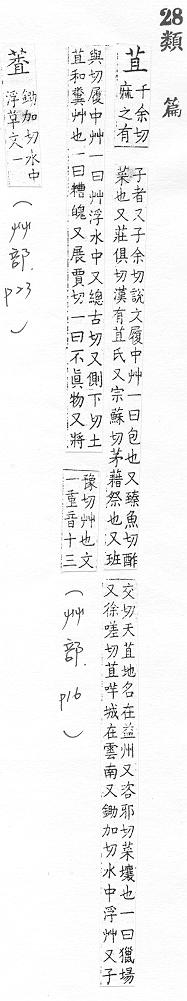 28
類
篇
苴
千余切
麻之有
子者又子余切說文履中艸一曰包也又臻魚切酢
菜也又莊俱切漢有苴氏又宗蘇切茅藉祭也又班
交切天苴地名在益州又咨邪切菜壤也一曰獵場
又徐嗟切苴咩城在雲南又鋤加切水中浮艸又子
與切履中艸一曰艸浮水中又總古切又側下切土
苴和糞艸也一曰糟魄又展賈切一曰不眞物又將
豫切艸也文
一重音十三
(艸部. p16)
鋤加切水中
浮草文一
(艸部. p23)